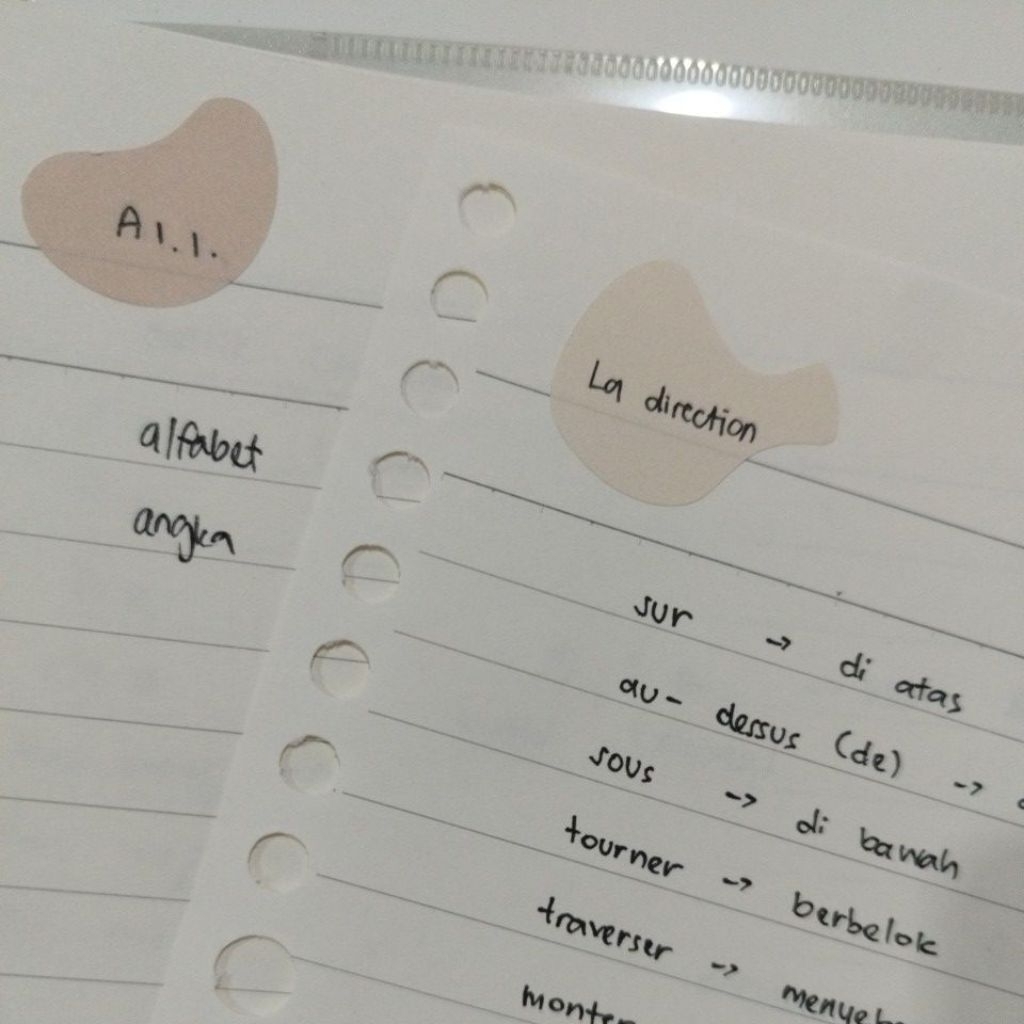 A1.1.
alfabet
angka
La direction
sur → di atas
au-dessus (de) →
sous → di bawah
tourner → berbelok
traverser →